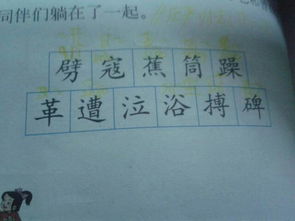 同伴们躺在了一起。
劈寇蕉筒躁
革遭泣浴搏碑